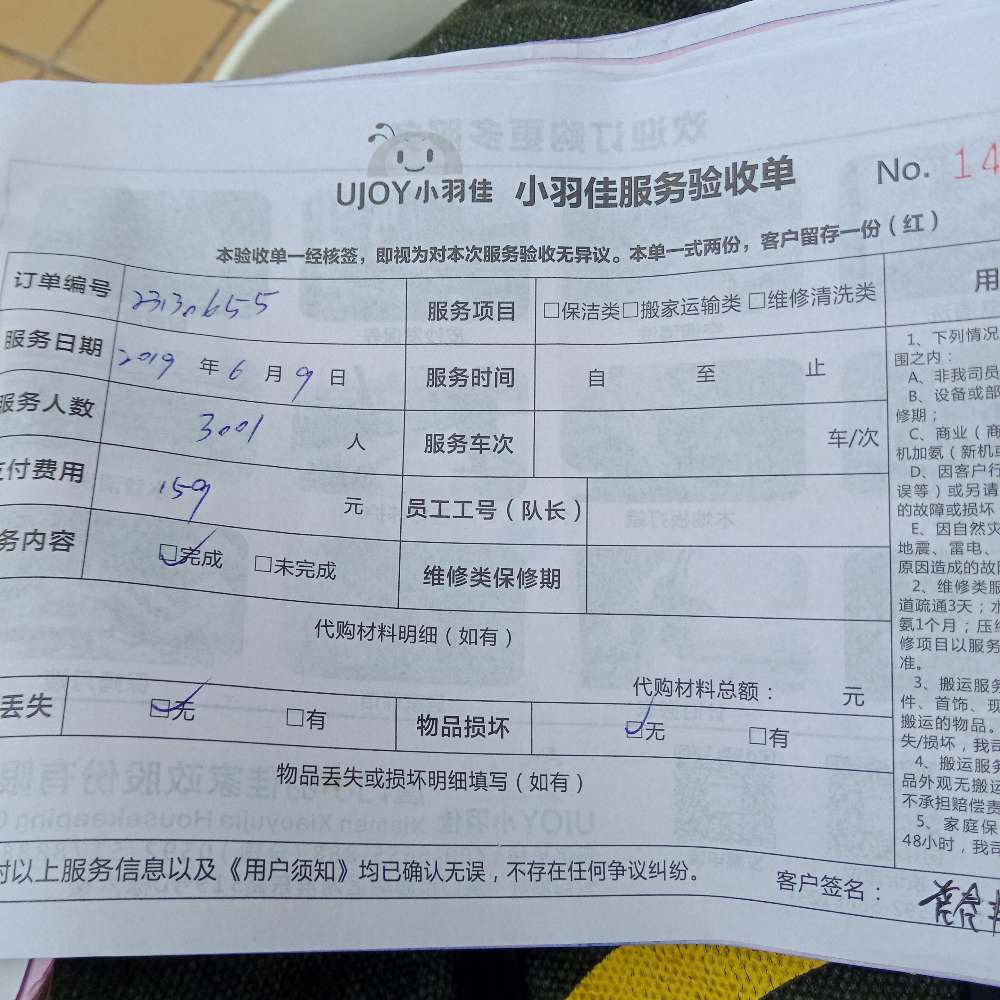 UJOY小羽佳 小羽佳服务验收单 No. 14
本验收单一经核签，即视为对本次服务验收无异议。本单一式两份，客户留存一份（红）
订单编号 23130655 服务项目 □保洁类□搬家运输类□维修清洗类
服务日期 2019 年 6 月 9 日 服务时间 自 至 止
服务人数 3001 人 服务车次 车/次
付费用 159 元 员工工号（队长）
务内容 □完成 □未完成 维修类保修期
代购材料明细（如有）
代购材料总额： 元
丢失 □无 □有 物品损坏 □无 □有
物品丢失或损坏明细填写（如有）
对以上服务信息以及《用户须知》均已确认无误，不存在任何争议纠纷。
客户签名：
用
1、下列情况
围之内：
A、非我司员
B、设备或部
修期；
C、商业（商
机加氨（新机或
D、因客户行
误等）或另请
的故障或损坏
E、因自然灾
地震、雷电、
原因造成的故障
2、维修类服
道疏通3天；水
氨1个月；压缩
修项目以服务
准。
3、搬运服务
件、首饰、现
搬运的物品。
失/损坏，我司
4、搬运服务
品外观无搬运
不承担赔偿责
5、家庭保
48小时，我司